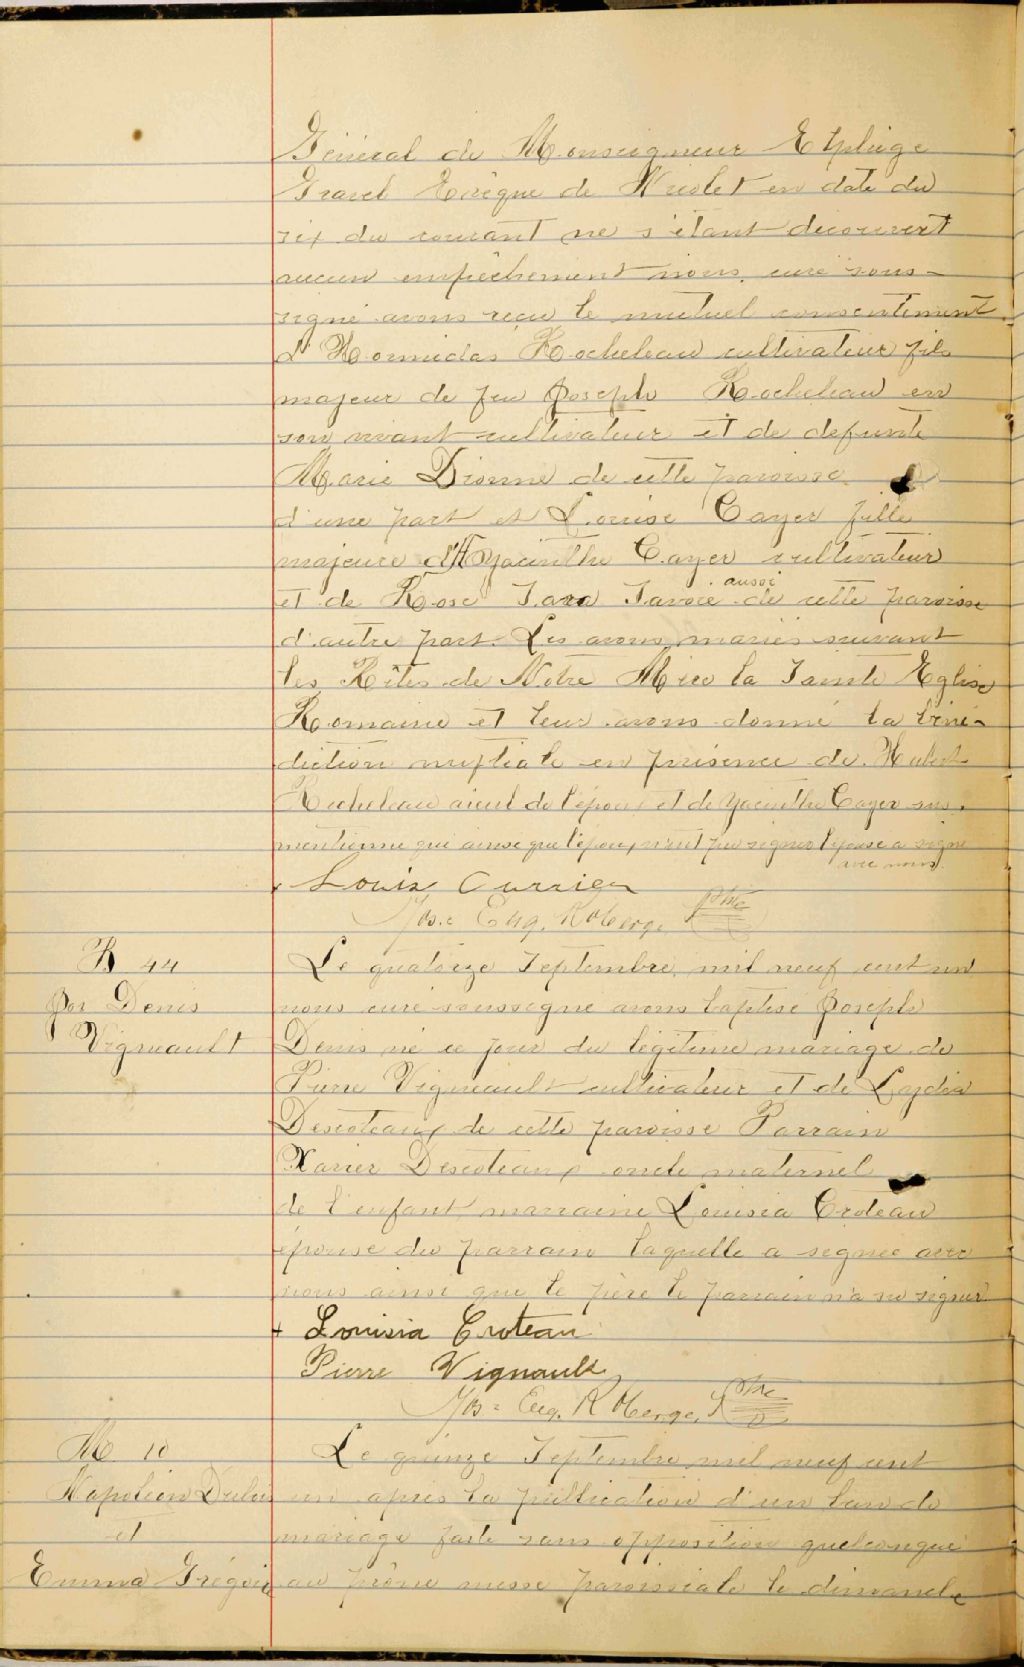 Général de Monseigneur Elphège
Gravel Evêque de Nicolet en date du
six du courant ne s'étant découvert
aucun empêchement nous, curé sous-
signé avons reçu le mutuel consentement
d'Hormidas Rocheleau cultivateur fils
majeur de feu Joseph Rocheleau en
son vivant cultivateur et de defunte
Marie Dionne de cette paroisse
d'une part et Louise Cayer fille
majeure d'Hyacinthe Cayer cultivateur
et de Rose Savoie aussi de cette paroisse
d'autre part. Les avons mariés suivant
les Rites de Notre Mère la Sainte Eglise
Romaine et leur avons donné la béné-
diction nuptiale en présence de Hubert
Rocheleau aieul de l'époux et de Yacinthe Cayer sus-
mentionné qui ainsi que l'époux n'ont pu signer l'épouse a signé
avec nous.
Jos. Eug. Roberge, Ptre
B 44
Jos Denis
Vigneault
Le quatorze Septembre mil neuf cent un
nous curé soussigné avons baptisé Joseph
Denis né ce jour du légitime mariage de
Pierre Vigneault cultivateur et de Lydia
Descoteaux de cette paroisse Parrain
Xavier Descoteaux oncle maternel
de l'enfant, marraine Louisia Croteau
épouse du parrain laquelle a signée avec
nous ainsi que le père le parrain n'a su signer
+ Louisia Croteau
Pierre Vignault
Jos. Eug. Roberge, Ptre
M 10
Napoléon Dubois
et
Emma Grégoire
Le quinze Septembre mil neuf cent
un après la publication d'un ban de
mariage faite sans opposition quelconque
au prône messe paroissiale le dimanche